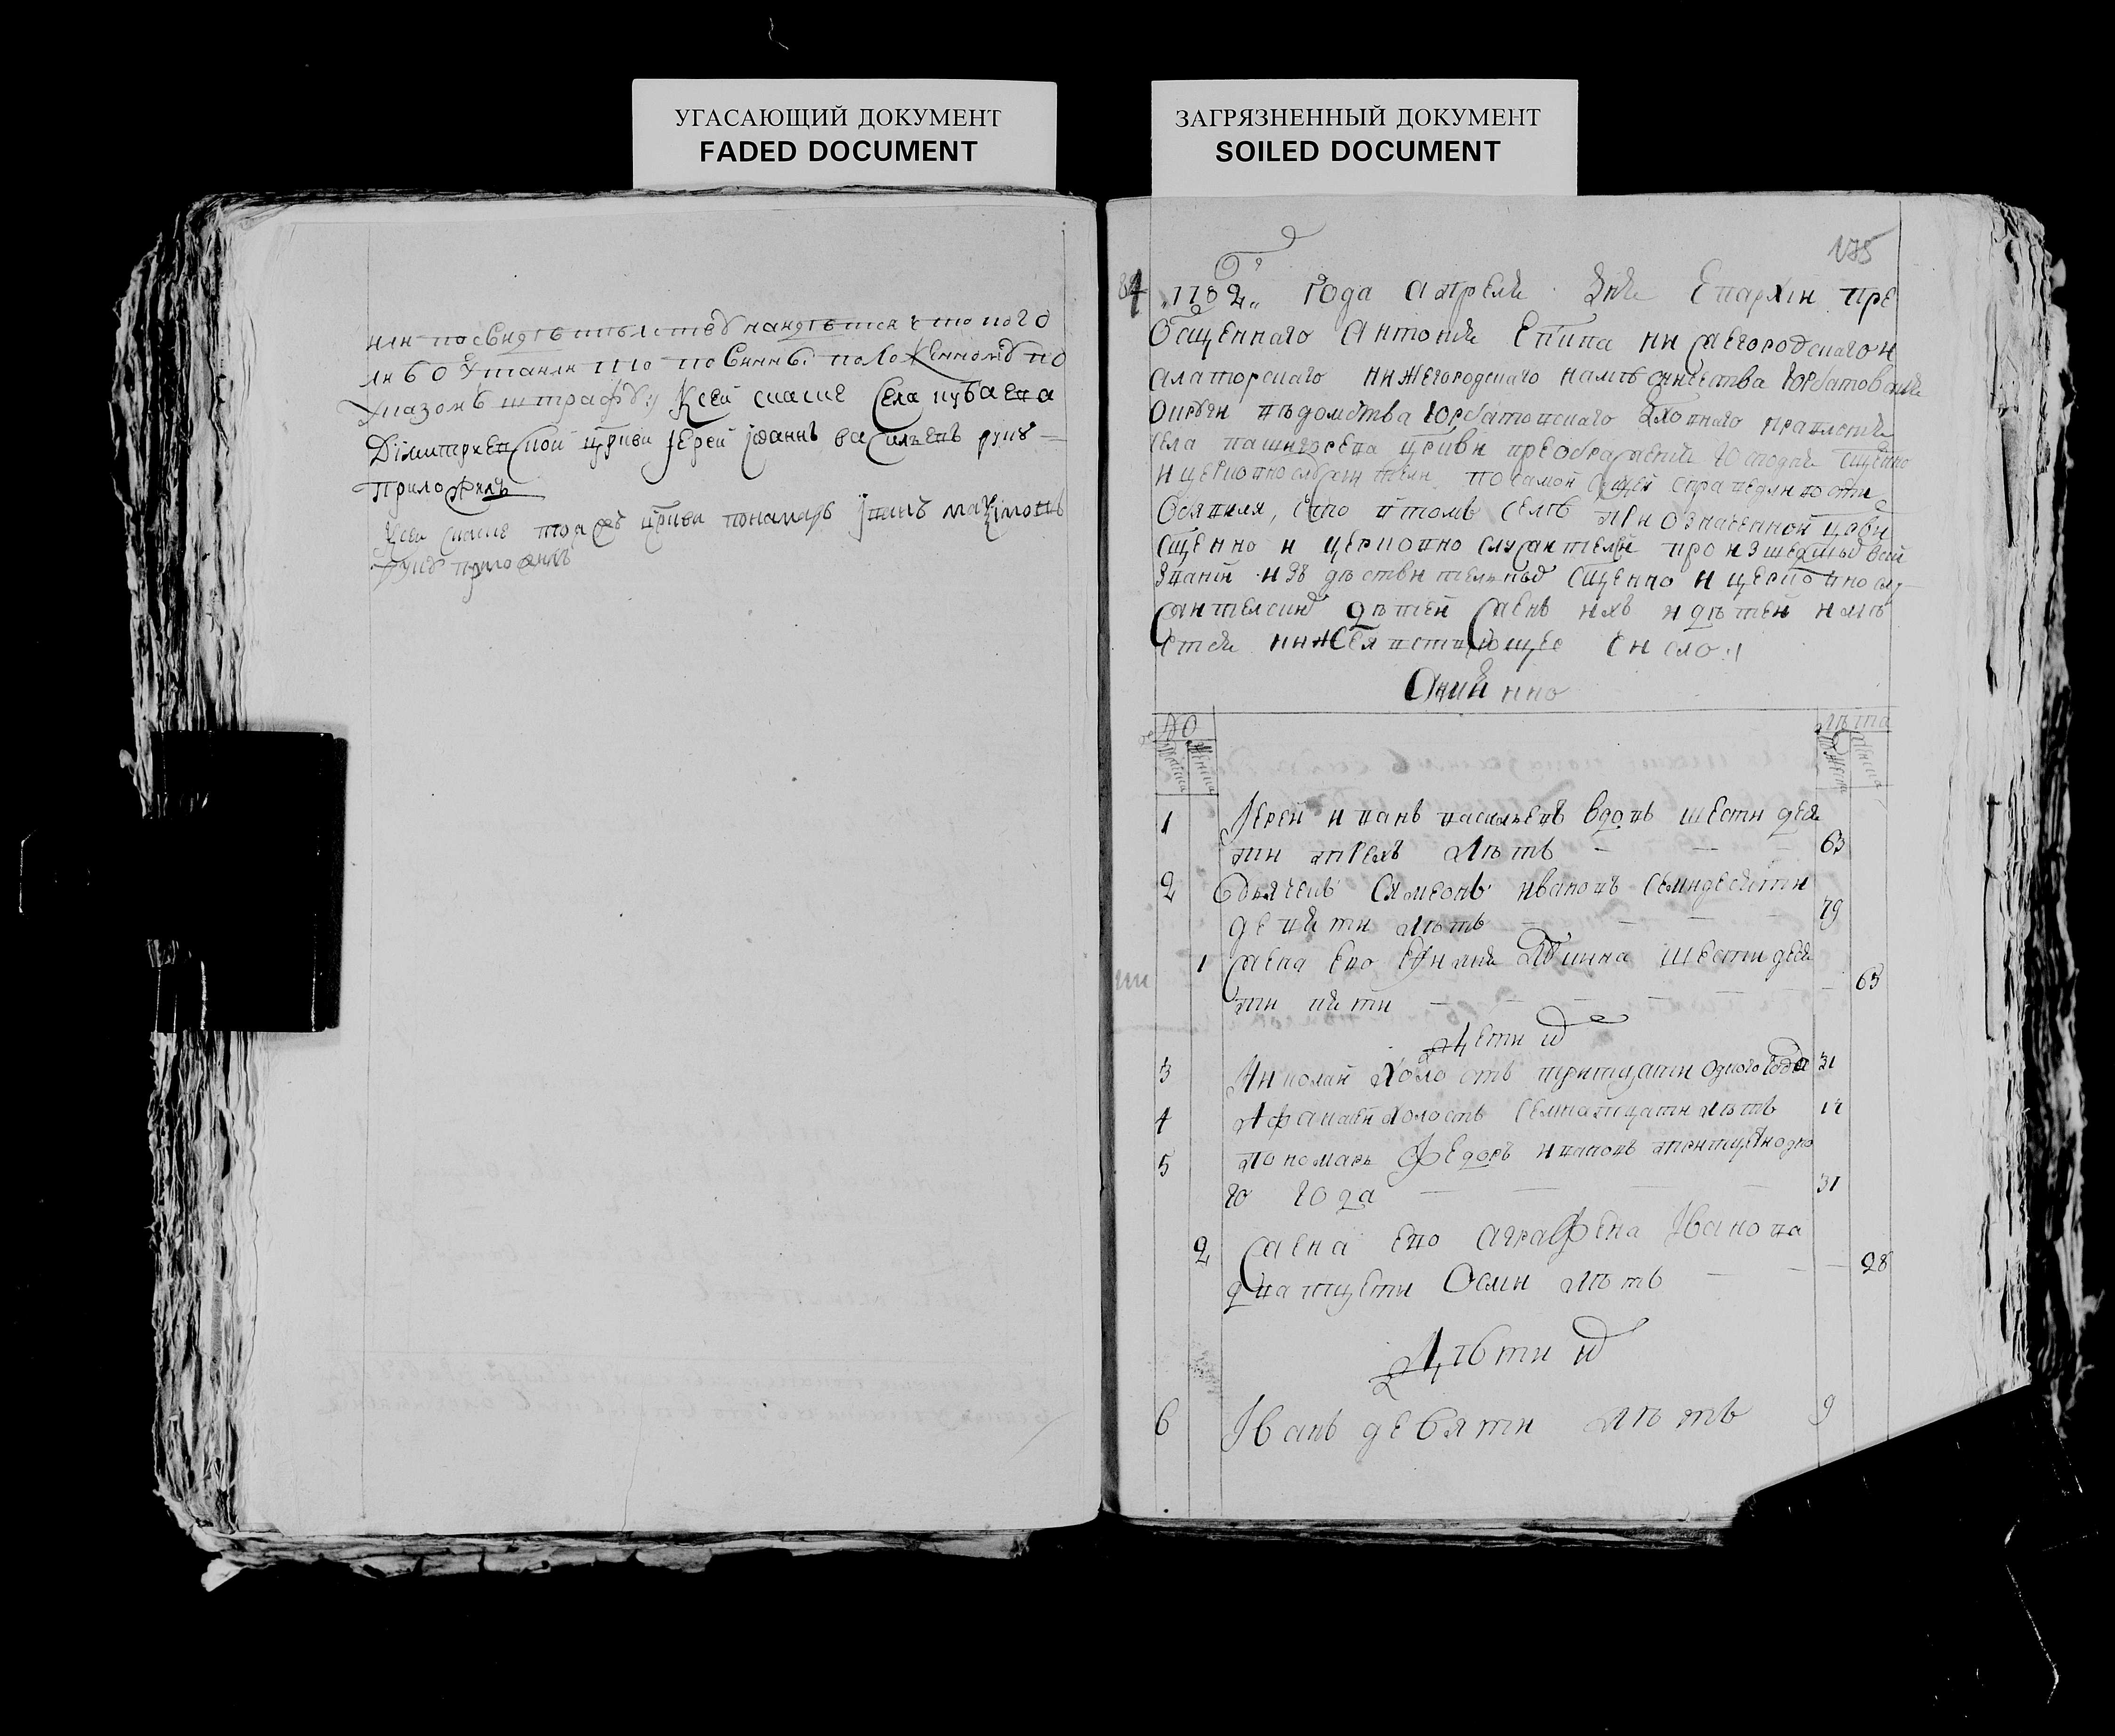 УГАСАЮЩИЙ ДОКУМЕНТ
FADED DOCUMENT
ЗАГРЯЗНЕННЫЙ ДОКУМЕНТ
SOILED DOCUMENT
или по свидѣтелству найдется что кого
либо утаили то по винны положенному по
указомъ штрафу Ксей скаске села
Димитриевской цркви Іерей Іоаннъ василиевъ руку
приложилъ
Ксей скаске тояжъ цркви понамарь Іванъ маѯімовъ
руку приложилъ
135
84 1782 года апреля дня Епархіи пре
Осщеннаго Антония Епкпа нижегородскаго и
алаторскаго нижегородскаго намѣсничества горбатовской
Округи вѣдомства горбатовскаго дховнаго правления
села цркви преображения Господня сщенно
и церковнослужители по самой сущей справедливости
Обявили, что втомъ селѣ при означенной цркви
сщенно и церковно служителей произшедшых всей
здании из действительных сщенно и церковнослу
жителских детей женъ ихъ и детей имѣ
ется нижеявствующее число
Аимянно
№ лѣта
1 Іерей иванъ васильевъ вдовъ шести деся
ти трехъ лѣтъ 63
2 дьячекъ Симеонъ ивановъ семидесяти
девяти лѣтъ 79
1 жена ево шестидеся
ти пяти 65
дети их
3 Николай холостъ тритцати одного года 31
4 Афанасей холостъ семнатцати лѣтъ 17
5 пономарь Федоръ ивановъ тритцети одно
го года 31
2 жена ево аграфена Іванова
дватцети Осми лѣтъ 28
Дѣти их
6 Іванъ девяти лѣтъ 9